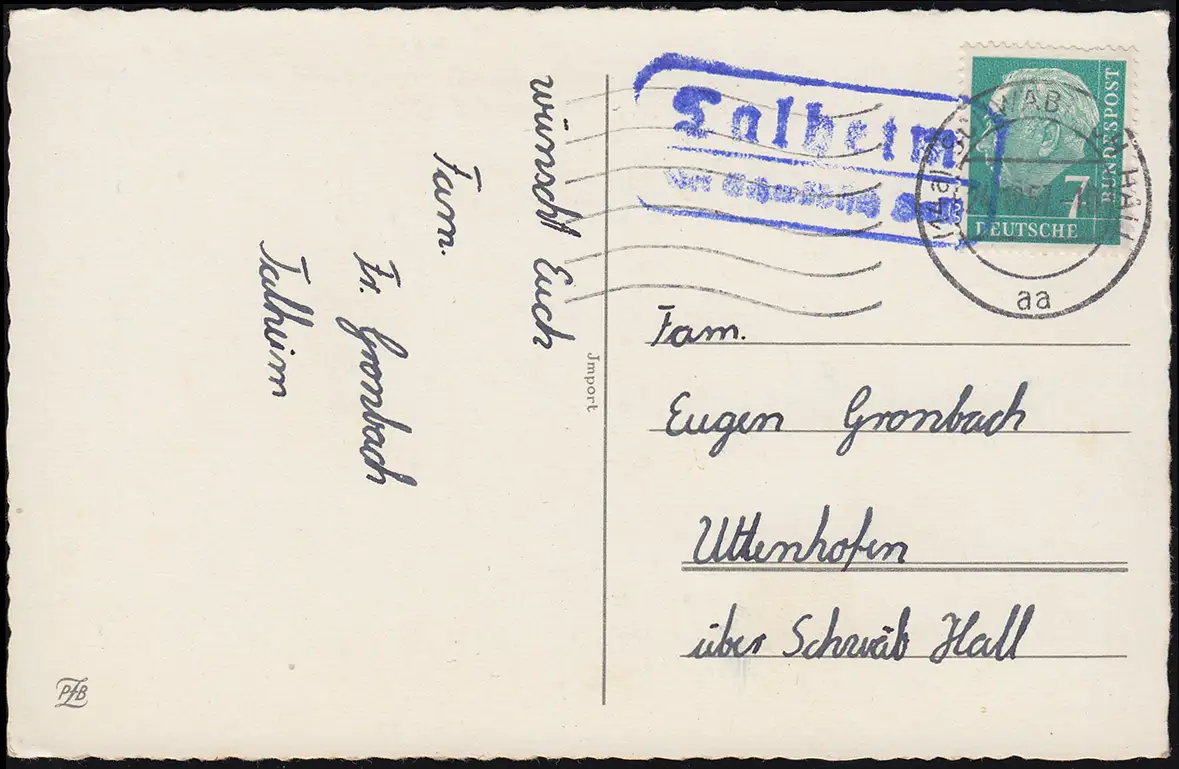 wünscht Euch
Fam.
Fr. Gronbach
Talheim
Import
PfB
Talheim
über Schwäbisch Hall
BUNDESPOST
7
DEUTSCHE
SCHWÄB
HALL
aa
Fam.
Eugen Gronbach
Uttenhofen
über Schwäb Hall